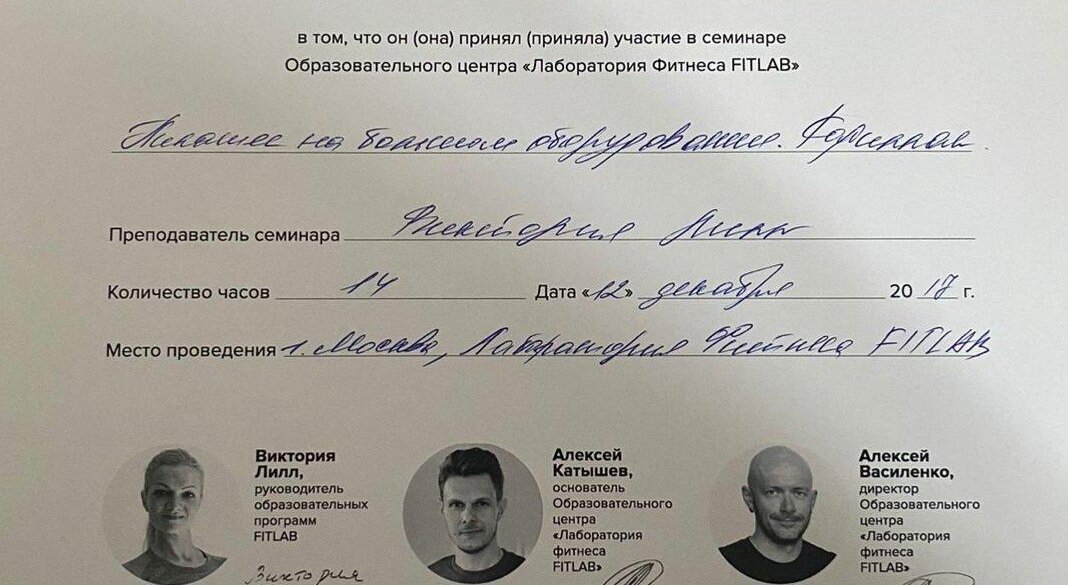 в том, что он (она) принял (приняла) участие в семинаре
Образовательного центра «Лаборатория Фитнеса FITLAB»
Пилатес на большом оборудовании.
Преподаватель семинара Виктория Лилл
Количество часов 14 Дата «12» декабря 2017 г.
Место проведения г. Москва, Лаборатория Фитнеса FITLAB
Виктория
Лилл,
руководитель
образовательных
программ
FITLAB
Виктория
Алексей
Катышев,
основатель
Образовательного
центра
«Лаборатория
фитнеса
FITLAB»
Алексей
Василенко,
директор
Образовательного
центра
«Лаборатория
фитнеса
FITLAB»